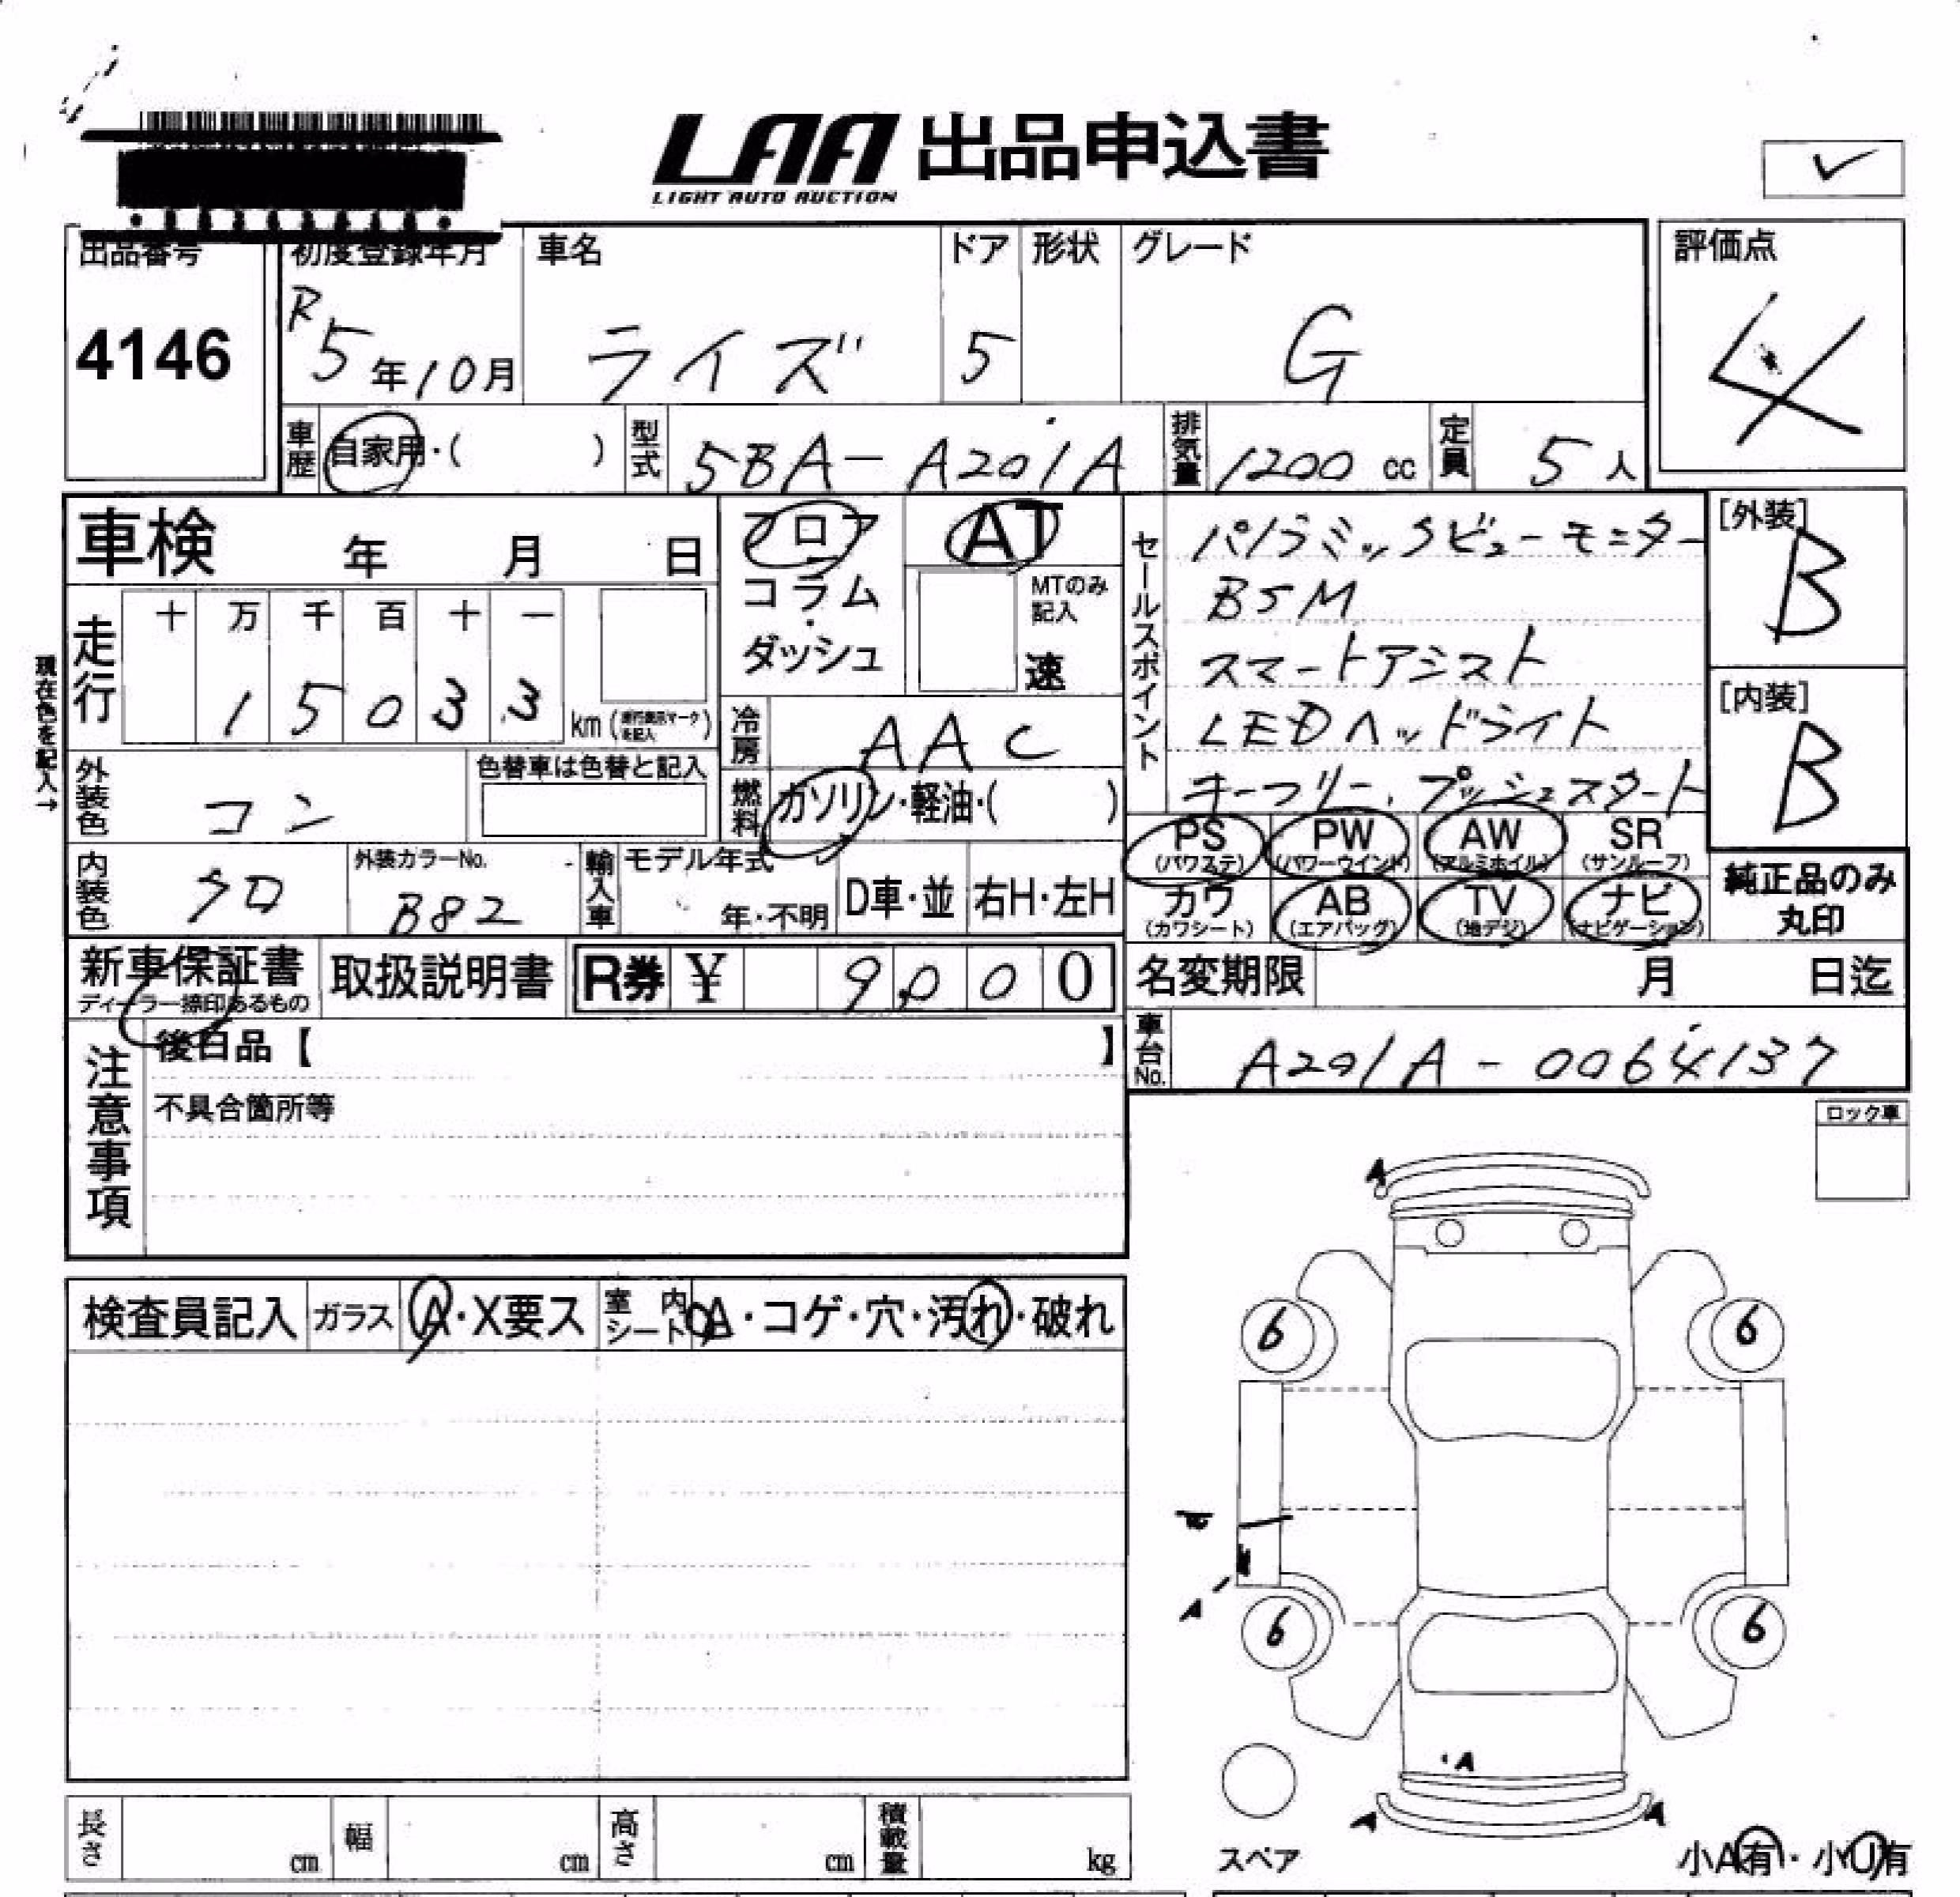 LAA 出品申込書
LIGHT AUTO AUCTION
出品番号
4146
初度登録年月
R5年10月
車名
ライズ
ドア
5
形状
グレード
G
評価点
4
車歴
自家用・( )
型式
5BA-A201A
排気量
1200 cc
定員
5人
車検 年 月 日
フロア
コラム
・
ダッシュ
AT
MTのみ
記入
速
セールスポイント
パノラミックビューモニター
BSM
スマートアシスト
LEDヘッドライト
キーフリー、プッシュスタート
[外装]
B
[内装]
B
現在色を記入→
走行
十 万 千 百 十 一
1 5 0 3 3
km (走行表示マークを記入)
冷房
AAC
燃料
ガソリン・軽油・( )
外装色
コン
色替車は色替と記入
内装色
クロ
外装カラーNo.
B82
輸入車
モデル年式
年・不明
D車・並
右H・左H
PS
(パワステ)
PW
(パワーウインド)
AW
(アルミホイル)
SR
(サンルーフ)
カワ
(カワシート)
AB
(エアバッグ)
TV
(地デジ)
ナビ
(ナビゲーション)
純正品のみ
丸印
新車保証書
ディーラー捺印あるもの
取扱説明書
R券 ¥ 9,000
名変期限 月 日迄
車台No.
A201A-0064137
注意事項
後日品【 】
不具合箇所等
ロック車
検査員記入
ガラス
A・X要ス
室内シート
A・コゲ・穴・汚れ・破れ
A
6
6
A
6
6
A
A
A
スペア
小A有・小U有
長さ cm
幅 cm
高さ cm
積載量 kg